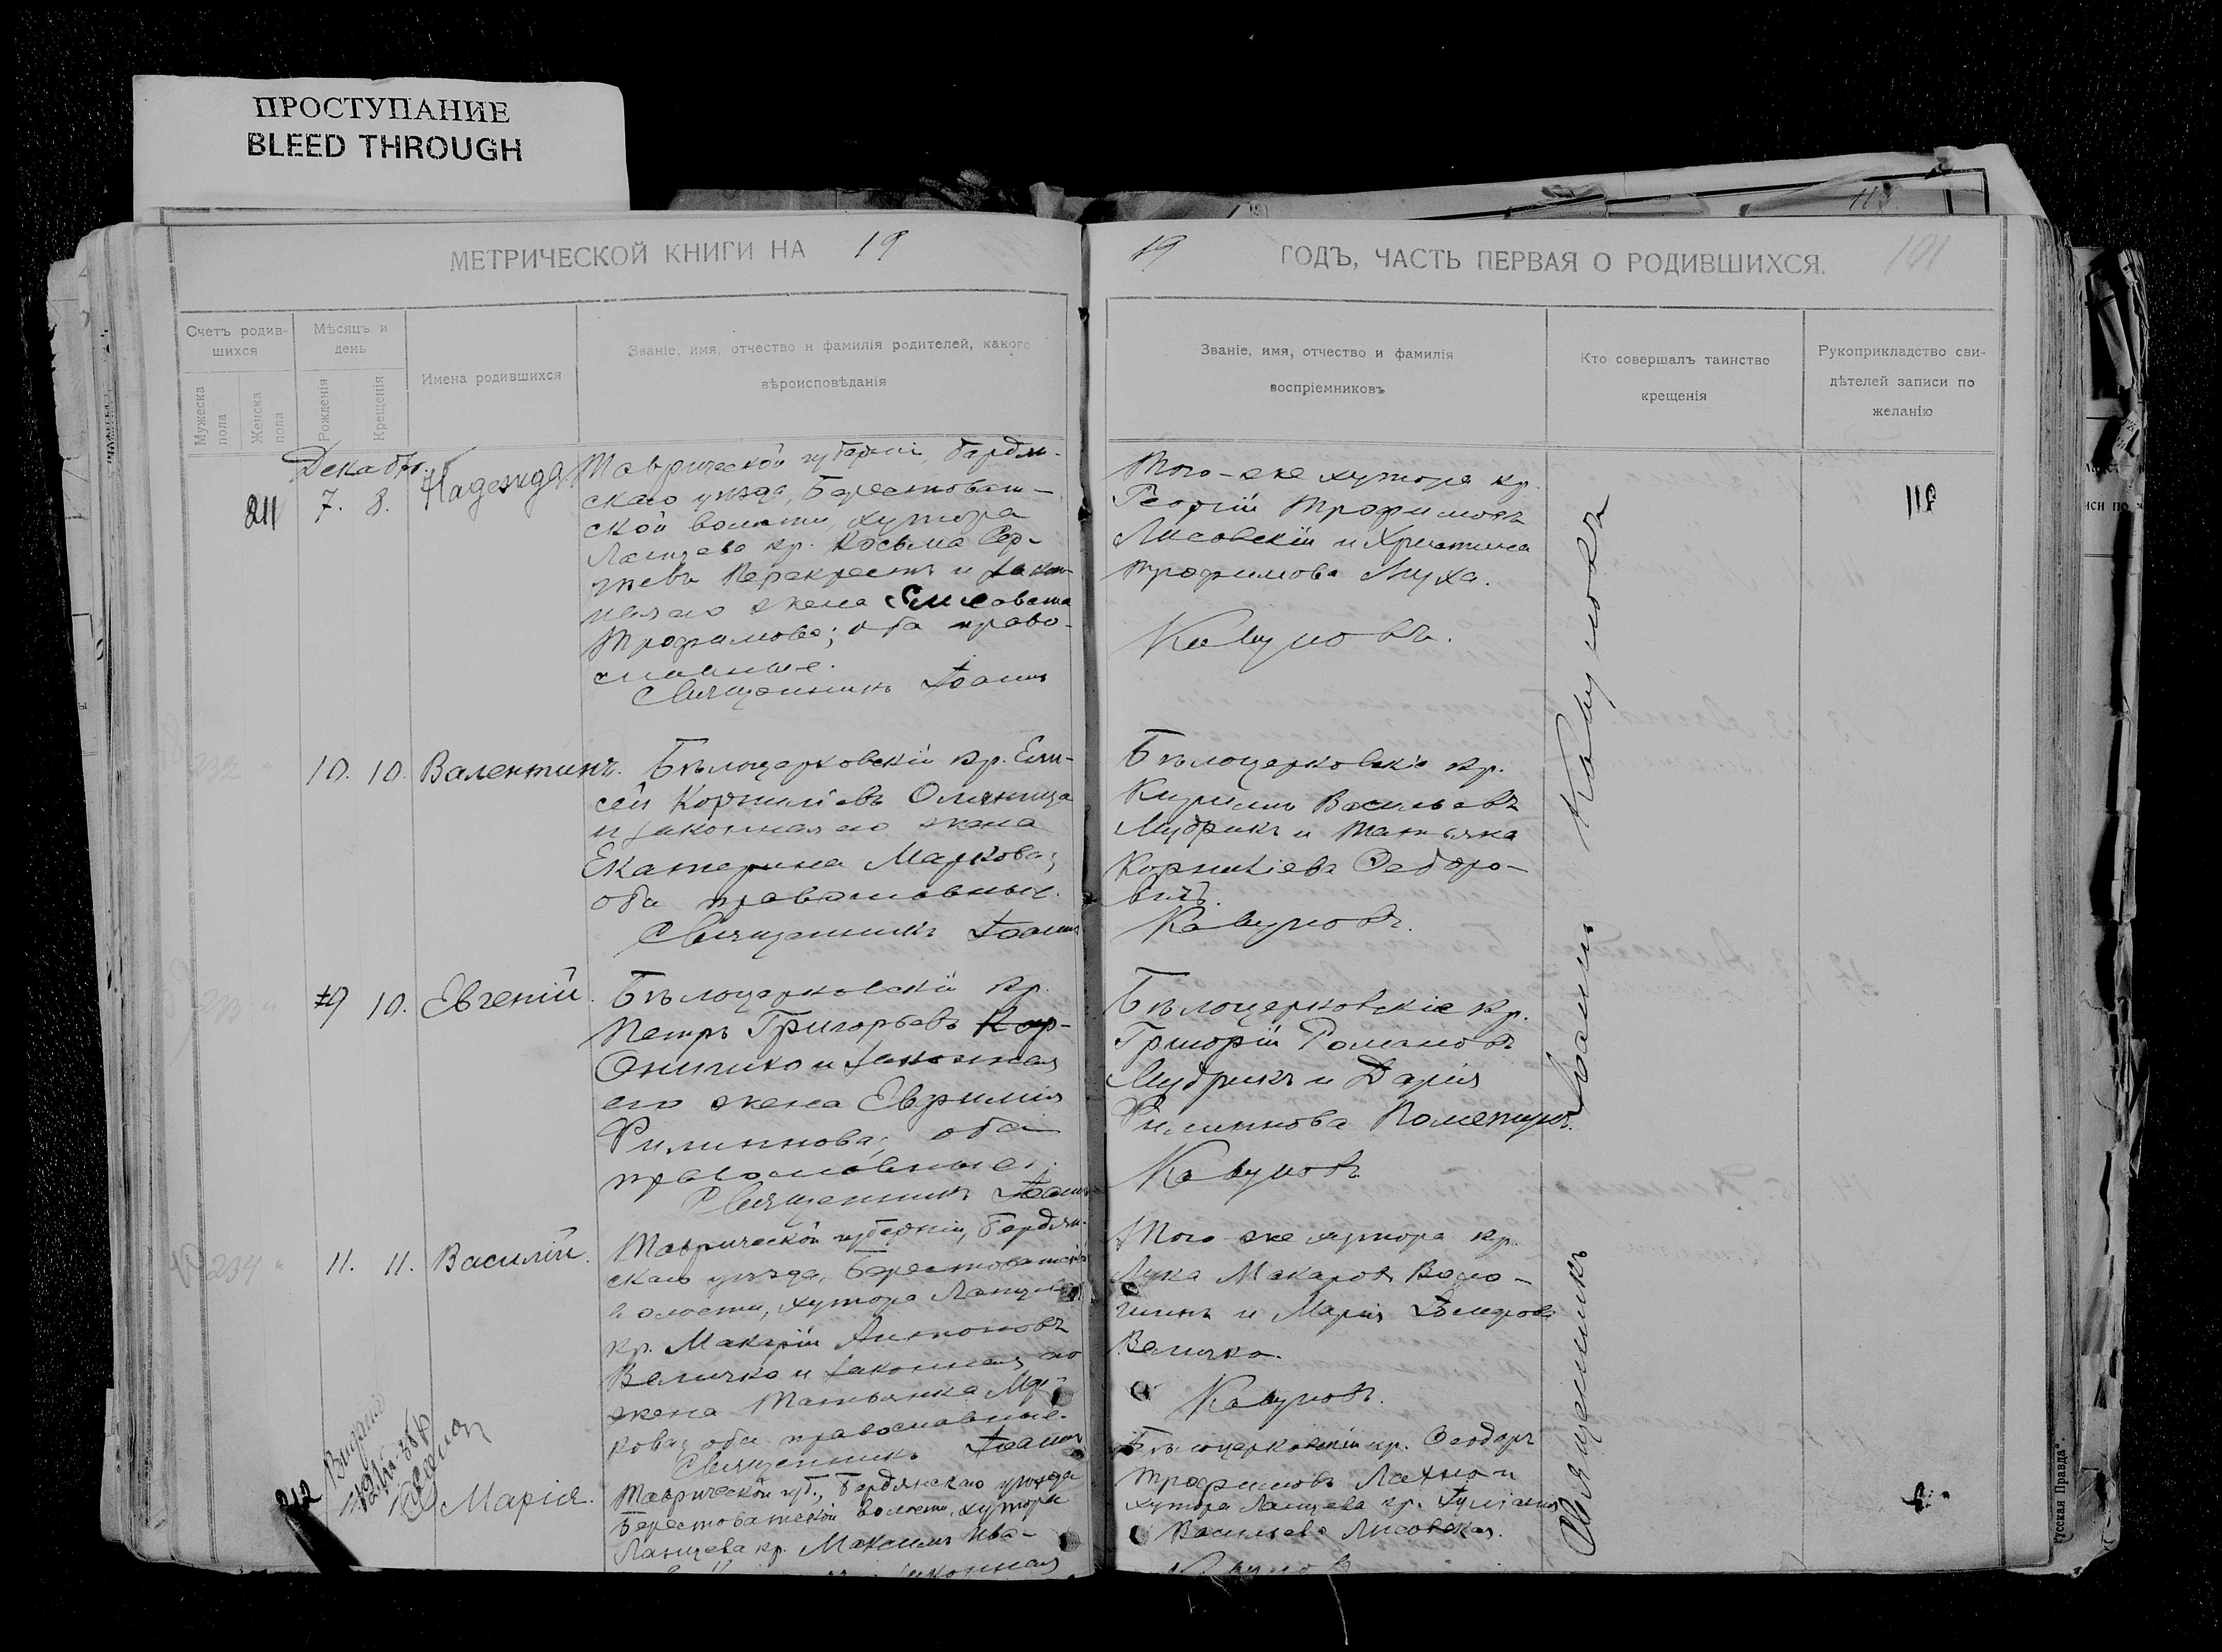 ПРОСТУПАНИЕ
BLEED THROUGH
МЕТРИЧЕСКОЙ КНИГИ НА 19
19 ГОДЪ, ЧАСТЬ ПЕРВАЯ О РОДИВШИХСЯ. 101
Счетъ родив-
шихся
Мужеска
пола
Женска
пола
Мѣсяцъ и
день
Рожденія
Крещенія
Имена родившихся
Званіе, имя, отчество и фамилія родителей, какого
вѣроисповѣданія
Званіе, имя, отчество и фамилія
воспріемниковъ
Кто совершалъ таинство
крещенія
Рукоприкладство сви-
дѣтелей записи по
желанію
Декабрь.
211 7. 8. Надежда
Таврической губерніи, Бердян-
скаго уѣзда, Берестоват-
ской волости, хутора
Ланцева кр. Косьма Сер-
гѣевъ Перекрестъ и закон-
ная его жена Елисавета
Трофимова; оба право-
славные.
Священникъ Іоаннъ
Того-же хутора кр.
Георгій Трофимовъ
Лисовскій и Христина
Трофимова Муха.
Кавуновъ.
232 10. 10. Валентинъ.
Бѣлоцерковскій кр. Ели-
сей Корниліевъ Оляница
и законная его жена
Екатерина Маркова;
оба православные.
Священникъ Іоаннъ
Бѣлоцерковскіе кр.
Кириллъ Васильевъ
Мудрикъ и Татьяна
Корниліева Федоро-
вичъ.
Кавуновъ.
233 9 10. Евгеній.
Бѣлоцерковскій кр.
Петръ Григорьевъ Кор-
Онипко и законная
его жена Евфимія
Филиппова; оба
православные.
Священникъ Іоаннъ
Бѣлоцерковскіе кр.
Григорій Романовъ
Мудрикъ и Дарія
Филиппова
Кавуновъ
234 11. 11. Василій.
Таврической губерніи, Бердян-
скаго уѣзда, Берестоватской
волости, хутора Ланцева
кр. Макарій Антоновъ
Величко и законная его
жена Татьяна Мар-
кова; оба православные.
Священникъ Іоаннъ
Того-же хутора кр.
Лука Макаровъ Воло-
шинъ и Марія
Величко.
Кавуновъ.
212 Марія.
Таврической губ., Бердянскаго уѣзда
Берестоватской волости, хутора
Ланцева кр. Максимъ Ива-
законная
Бѣлоцерковскій кр. Феодоръ
Трофимовъ Лахно и
хутора Ланцева кр. Іуліанія
Васильева Лисовская.
Кавуновъ
Священникъ Іоаннъ Кавуновъ
усская Правда".